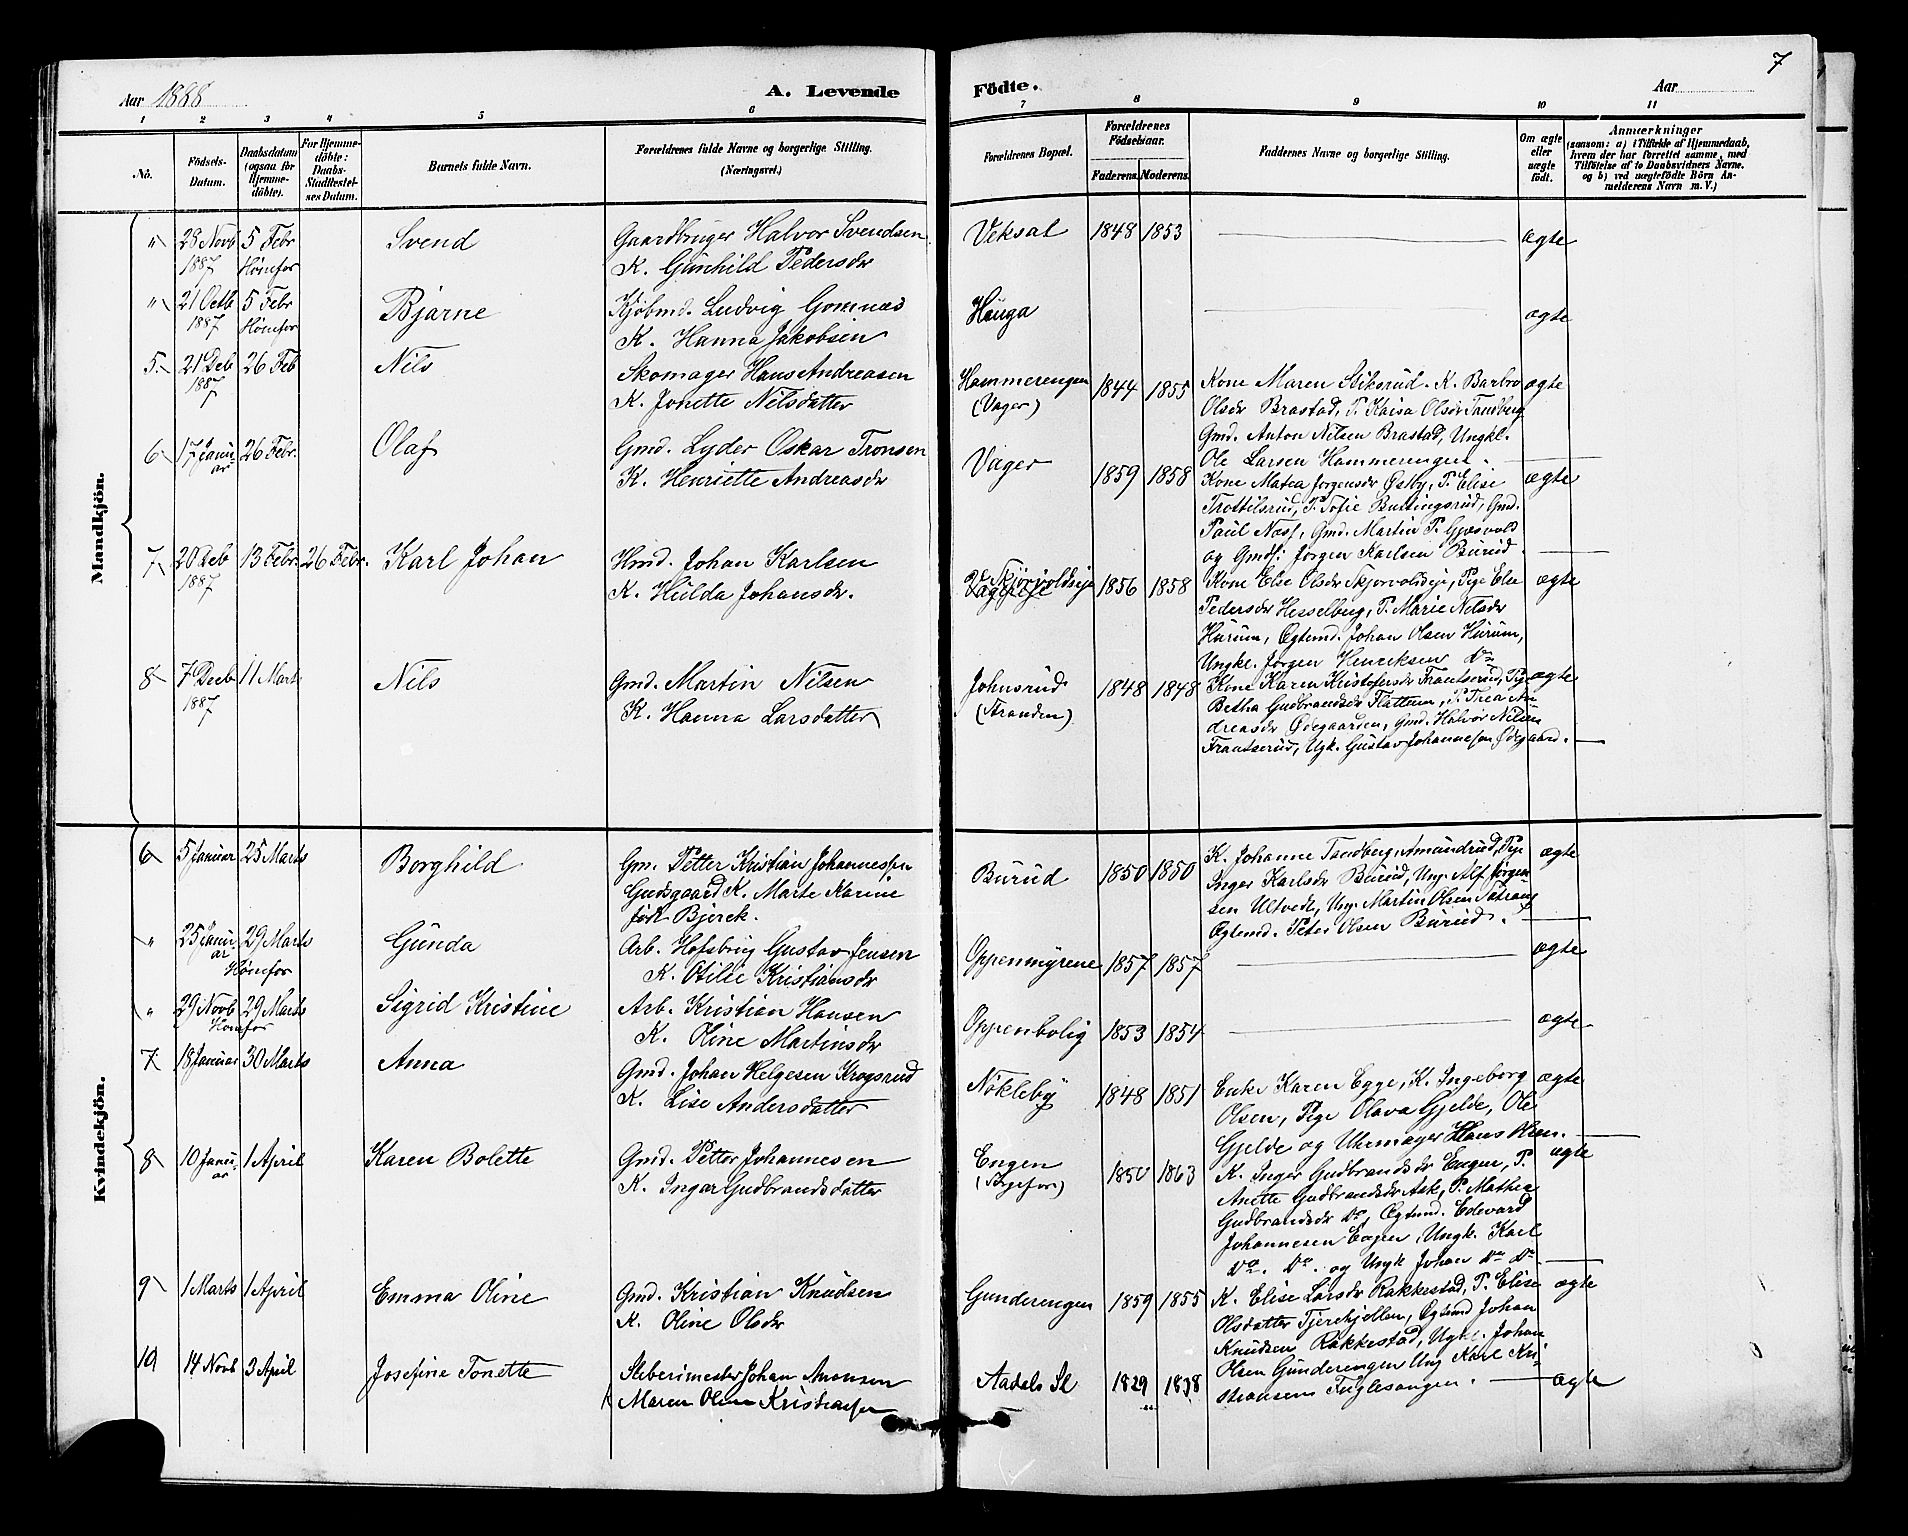 7
Aar 1888
A. Levende Födte.
Aar
1 2 3 4 5 6 7 8 9 10 11
No.
Födsels-Datum.
Daabsdatum (ogsaa for Hjemme-döbte).
For Hjemme-döbte: Daabs-Stadfæstelses Datum.
Barnets fulde Navn.
Forældrenes fulde Navne og borgerlige Stilling. (Næringsvei.)
Forældrenes Bopæl.
Forældrenes Födselsaar.
Faderens. Moderens.
Faddernes Navne og borgerlige Stilling.
Om ægte eller uægte födt.
Anmærkninger
(saasom: a) i Tilfælde af Hjemmedaab, hvem der har forrettet samme, med Tilföielse af to Daabsvidners Navne, og b) ved uægtefödte Börn Anmelderens Navn m. V.)
Mandkjön.
" 28 Novb 1887 5 Febr Hønefos Svend Gaardbruger Halvor Svendsen
K. Gunhild Pedersdr
Veksal 1848 1853 ægte
" 21 Octb 1887 5 Febr Hønefos Bjarne Kjöbmd. Ludvig Gomnæs
K. Hanna Jakobsen
Hauga ægte
5. 21 Deb 1887 26 Feb Nils Skomager Hans Andreasen
K. Jonette Nilsdatter
Hammerengen (Vager) 1844 1855 Kone Maren Stiksrud. K. Barbro ægte
Olsdr Brastad, P. Kaisa Olsdr Tandberg
Gmd. Anton Nilsen Brastad, Ungkl.
Ole Larsen Hammerengen.
6 17 Januar 26 Febr. Olaf Gmd. Lyder Oskar Tronsen
K. Henriette Andreasdr
Vager 1859 1858 Kone Matea Jorgensdr Østby, P. Elise ægte
Trottilsrud, P. Sofie Buttingsrud, Gmd.
Paul Næss, Gmd. Martin P. Gjæsvold
og Gmds: Jørgen Karlsen Burud.
7 20 Deb 1887 13 Febr. 26 Febr. Karl Johan Hmd. Johan Karlsen
K. Hulda Johansdr.
Skjørvoldseje 1856 1858 Kone Else Olsdr Skjorvoldseje, Pige Else ægte
Pedersdr Hesselberg, P. Marie Nilsdr
Hurum, Ægtemd. Johan Olsen Hurum,
Ungkl. Jørgen Henriksen Do
8 7 Decb 1887 11 Marts Nils Gmd. Martin Nilsen
K. Hanna Larsdatter
Johnsrud (Stranden) 1848 1848 Kone Karen Kristofersdr Frantserud, Pige ægte
Betha Gudbrandsdr Flattum, P. Thea An-
dreasdr Ødegaarden, Gmd. Halvor Nilsen
Frantserud, Ugk. Gustav Johannesen Ødegaard.
Kvindekjön.
6 5 Januar 25 Marts Borghild Gm. Petter Kristian Johannessen
Gudsgaard K. Marte Karine
født Bjerck.
Burud 1850 1850 K. Johanne Tandberg, Amundrud, Pige ægte
Inger Karlsdr Burud, Ung. Alf Jørgen
sen Ultvedt, Ung. Martin Olsen
Ægtemd. Peter Olsen Burud.
" 25 Januar Hønefos 29 Marts Gunda Arb. Hofsbrug Gustav Jensen
K. Otilie Kristiansdr
Oppenmyrene 1857 1857 ægte
" 29 Novb Hønefos 29 Marts Sigrid Kristine Arb. Kristian Hansen
K. Oline Martinsdr
Oppenbolig 1853 1854 ægte
7 18 Januar 30 Marts Anna Gmd. Johan Helgesen Krogsrud
K. Lise Andersdatter
Nökleby 1848 1851 Enke Karen Egge, K. Ingeborg ægte
Olsen, Pige Olava Gjelde, Ole
Gjelde og Uhrmager Hans Olsen.
8 10 Januar 1 April Karen Bolette Gmd. Petter Johannesen
K. Ingar Gudbrandsdatter
Engen 1850 1863 K. Inger Gudbrandsdr Engen, P. ægte
Anette Gudbrandsdr Ask, P. Mathea
Gudbrandsdr Do, Ægtemd. Edevard
Johannesen Engen, Ungk. Karl
Do. Do. og Ungk Johan Do Do
9 1 Marts 1 April Emma Oline Gmd. Kristian Knudsen
K. Oline Olsdr
Gunderengen 1859 1855 K. Elise Larsdr Rakkestad, P. Elise ægte
Olsdatter Tjerchjellen, Ægtemd Johan
Knudsen Rakkestad, Ugkl. Johan
Olsen Gunderengen Ung Karl Kri-
stiansen Fuglesangen.
10 14 Novb 3 April Josefine Tonette Stebermester Johan Amonsen
K Maren Oline Kristiansen
Aadals Sl 1829 1838 ægte